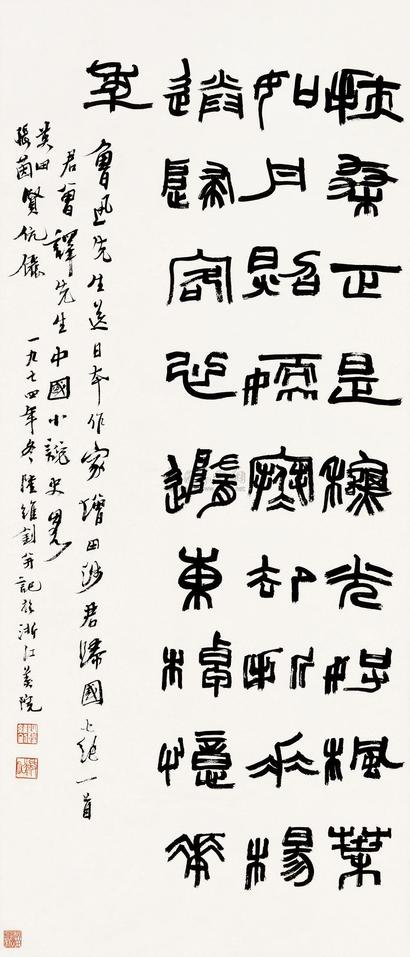 扶桑正是穐光好楓葉
如丹照嫩寒却折垂楊
送歸客心隨東棹憶華
年
魯迅先生送日本作家增田涉君歸國七絕一首
君曾譯先生中國小說史略
英田
張茵賢伉儷 一九七四年冬陸維釗并記於浙江美院